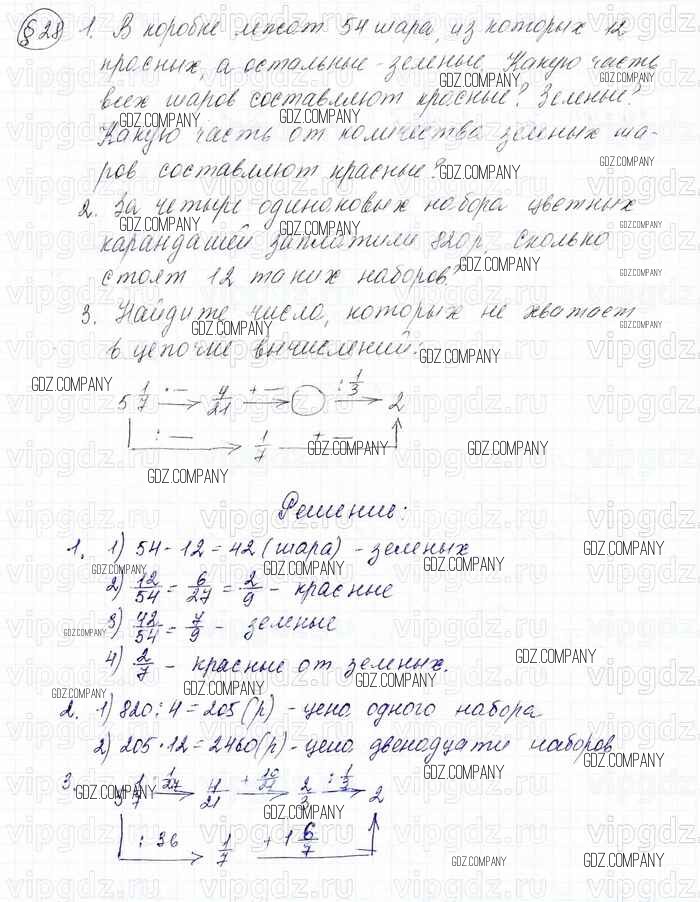 § 28 1. В коробке лежат 54 шара, из которых 12
красных, а остальные - зеленые. Какую часть
всех шаров составляют красные? Зеленые?
Какую часть от количества зеленых ша-
ров составляют красные?
2. За четыре одинаковых набора цветных
карандашей заплатили 820 р. Сколько
стоят 12 таких наборов?
3. Найдите число, которых не хватает
в цепочке вычислений:
5 1/7 · — → 4/21 + — → ○ : 1/3 → 2
: — → 1/7 + — →
Решение:
1. 1) 54 - 12 = 42 (шара) - зеленых
2) 12/54 = 6/27 = 2/9 - красные
3) 42/54 = 7/9 - зеленые
4) 2/7 - красные от зеленых.
2. 1) 820 : 4 = 205 (р) - цена одного набора
2) 205 · 12 = 2460 (р) - цена двенадцати наборов
3. 5 1/7 · 1/27 → 4/21 + 10/21 → 2/3 : 1/3 → 2
: 36 → 1/7 + 1 6/7
GDZ.COMPANY
vipgdz.ru